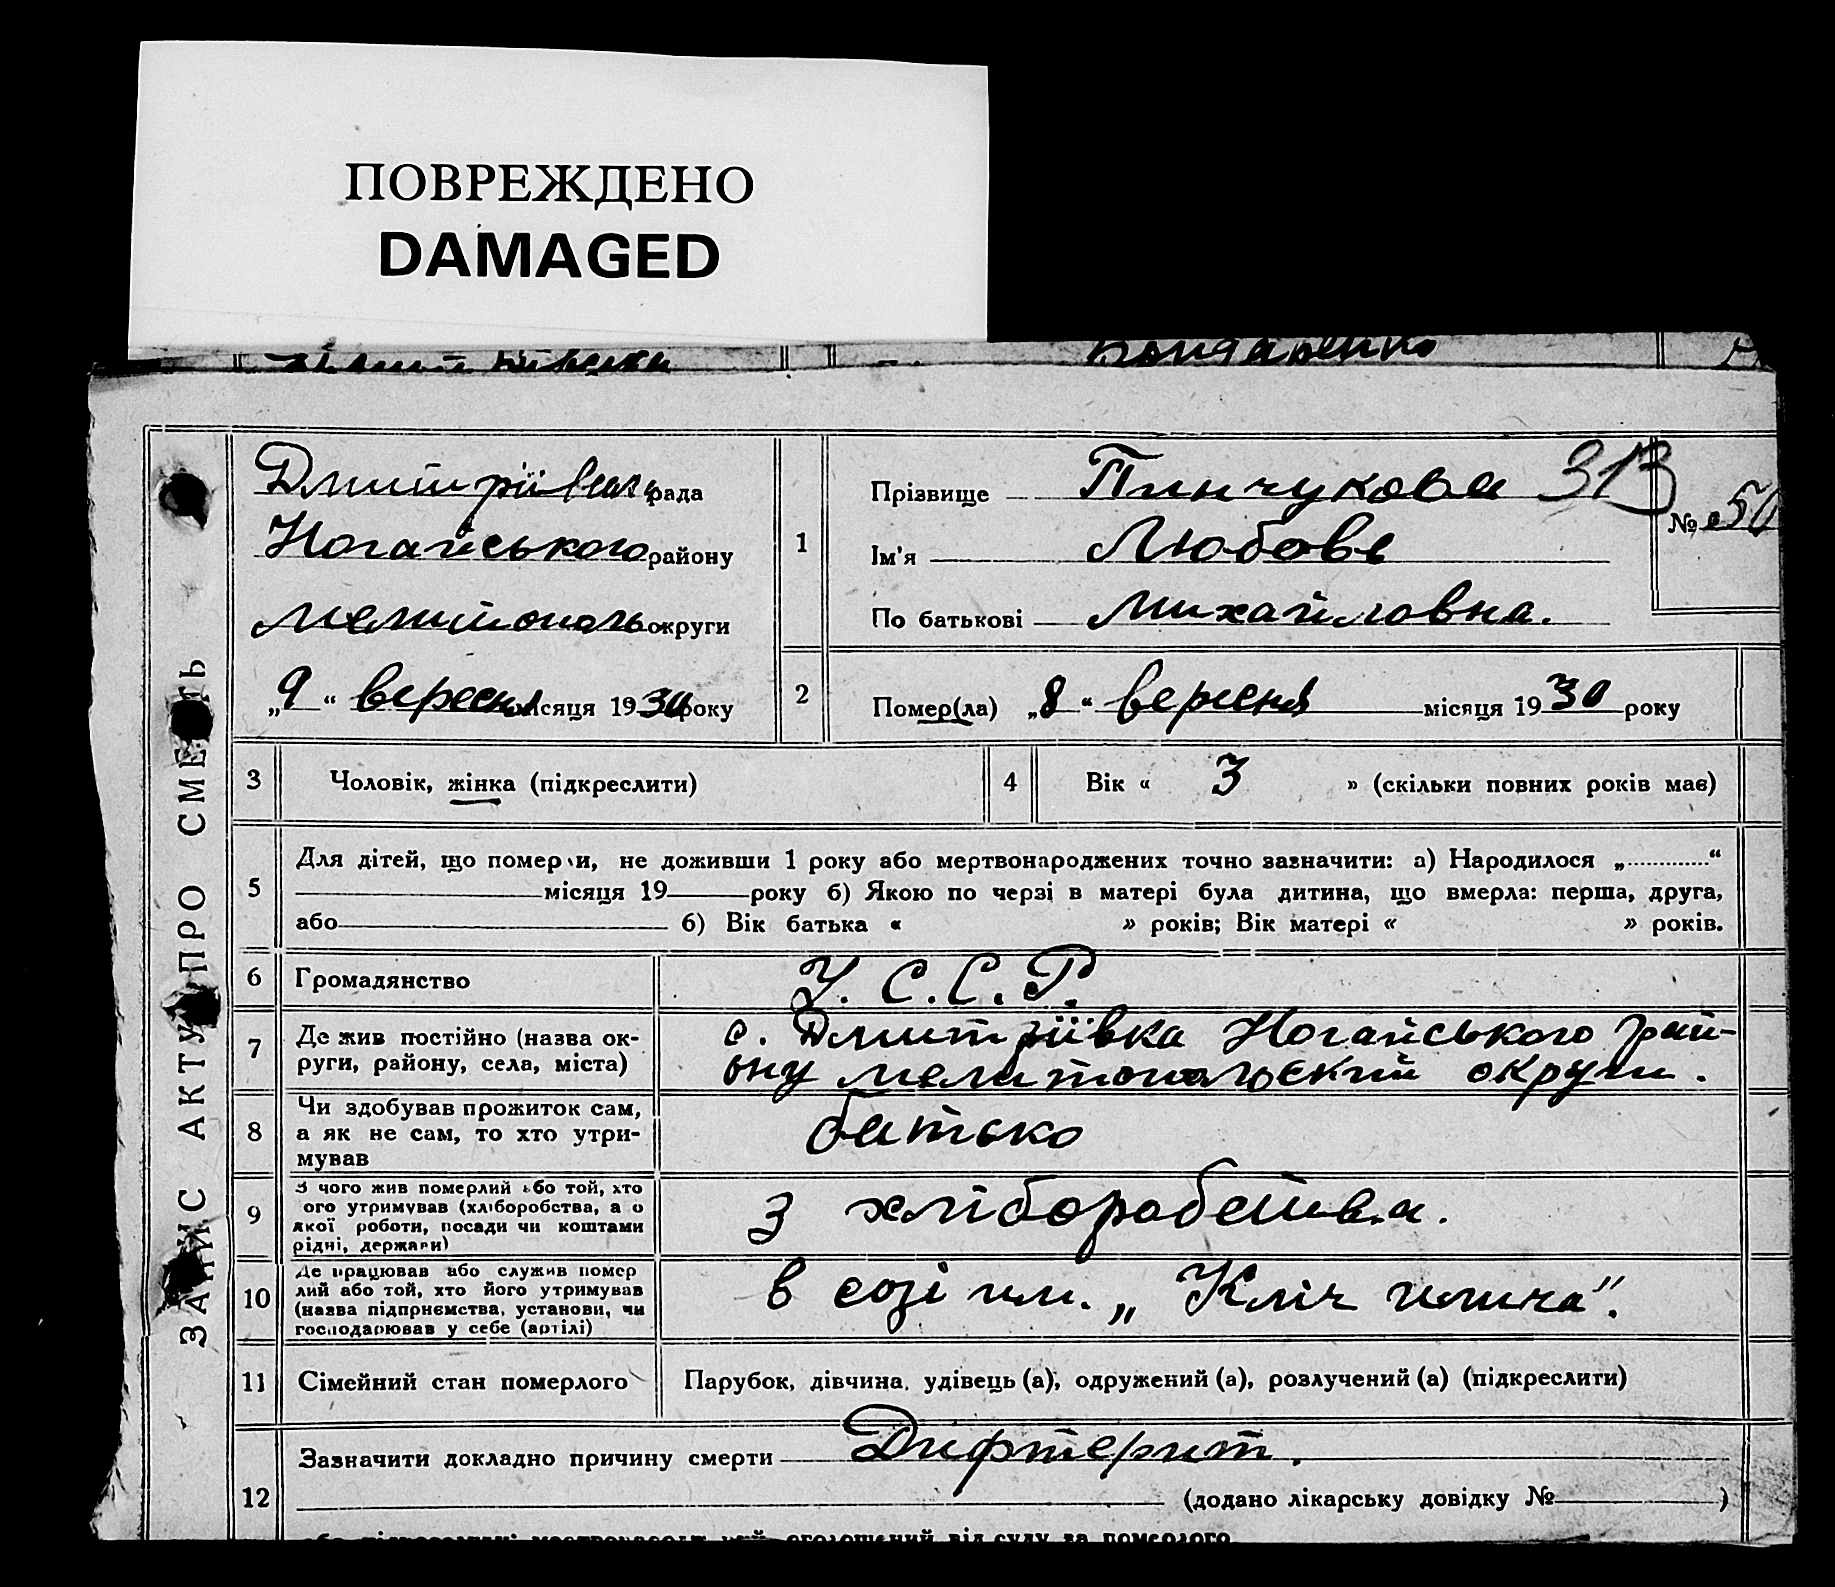 ПОВРЕЖДЕНО
DAMAGED
Бондаренко
ЗАПИС АКТУ ПРО СМЕРТЬ
Дмитріївська рада
Ногайського району
Мелитополь. округи
„9“ вересня місяця 1930 року
1
Прізвище Пинчукова 313
Ім'я Любовь
По батькові Михайловна.
№ 50
2
Помер(ла) „8“ вересня місяця 1930 року
3 Чоловік, жінка (підкреслити)
4 Вік « 3 » (скільки повних років має)
5
Для дітей, що померли, не доживши 1 року або мертвонароджених точно зазначити: а) Народилося „............“
місяця 19 року б) Якою по черзі в матері була дитина, що вмерла: перша, друга,
або б) Вік батька « » років; Вік матері « » років.
6 Громадянство У.С.С.Р.
7
Де жив постійно (назва ок-
руги, району, села, міста)
с. Дмитріївка Ногайського рай-
ону Мелитопольский округи.
8
Чи здобував прожиток сам,
а як не сам, то хто утри-
мував
батько
9
З чого жив померлий або той, хто
ого утримував (хліборобства, а о
якої роботи, посади чи коштами
рідні, держави)
З хліборобства.
10
Де працював або служив помер
лий або той, хто його утримував
(назва підприємства, установи, чи
господарював у себе (артілі)
в созі им. „Кліч Илича“.
11 Сімейний стан померлого Парубок, дівчина, удівець (а), одружений (а), розлучений (а) (підкреслити)
12
Зазначити докладно причину смерти Дифтерит.
(додано лікарську довідку № )
оголошений від суду за померлого